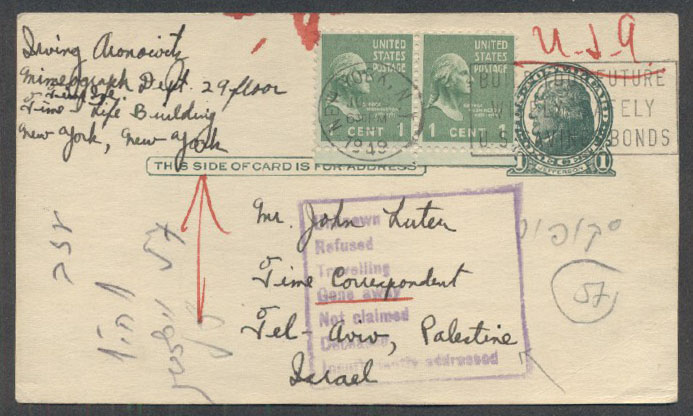 Irving Aronowitz
Mimeograph Dept. 29 floor
Time-Life Building
New York, New York
U.S.A
UNITED
STATES
POSTAGE
1 CENT
UNITED
STATES
POSTAGE
CENT 1
NEW YORK, N.Y.
1949
BUY YOUR FUTURE
SAFELY
U.S. SAVINGS BONDS
1
JEFFERSON
1
THIS SIDE OF CARD IS FOR ADDRESS
Mr. John Luter
Time Correspondent
Tel-Aviv, Palestine
Israel
Unknown
Refused
Travelling
Gone away
Not claimed
Deceased
Insufficiently addressed
57
57